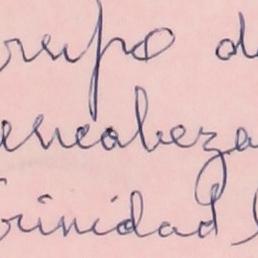 rupo d
encabeza
Trinidad